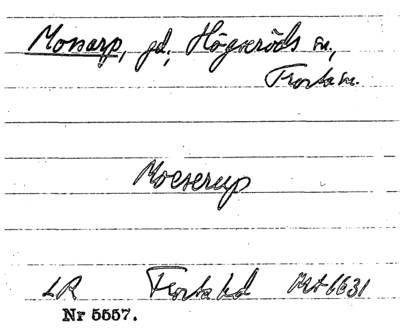 Mossarp, gd, Högseröds sn,
Frosta hd.
Moeserup
LR Frosta hd 1631
Nr 5557.